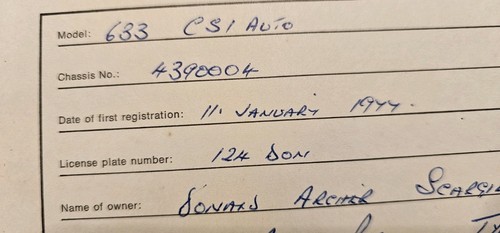 Model: 633 CSI AUTO
Chassis No.: 4390004
Date of first registration: 11. JANUARY 1977.
License plate number: 124 DON
Name of owner: DONALD ARCHER